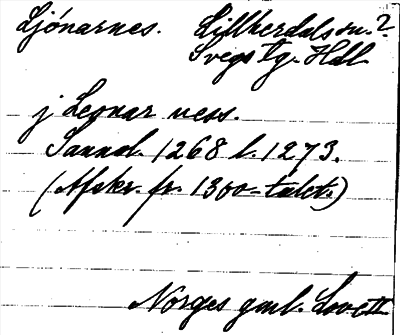 Ljónarnes. Lillherdals sn.?
Svegs tg. Hdl
j Leonar ness.
Sannol. 1268 l. 1273.
(Afskr. fr. 1300-talet.)
Norges gml. Love II